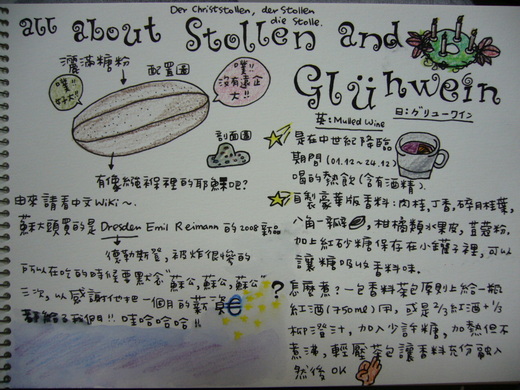 Der Christstollen, der Stollen
die Stolle.
all about Stollen and
Glühwein
灑滿糖粉
配置圖
噗!
好大!
噗!!
沒有遠企
大!!
剖面圖
有像絁褓裡的耶穌吧?
由來請看中文Wiki~.
蘇大頭買的是Dresden Emil Reimann的2008新品
德勒斯登,被炸很慘的
所以在吃的時候要默念"蘇公,蘇公,蘇公"
三次,以感謝他把一個月的薪資€
都給了我們!! 哇哈哈哈!!
英:Mulled Wine
日:グリューワイン
是在中世紀降臨
期間(01.12~24.12)
喝的熱飲(含有酒精).
自製豪華版香料:肉桂,丁香,碎月桂葉,
八角一顆,柑橘類水果皮,荳蔻粉,
加上紅砂糖保存在小罐子裡,可以
讓糖吸收香料味.
?
怎麼煮?一包香料茶包原則上給一瓶
紅酒(750ml)用,或是2/3紅酒+1/3
柳橙汁,加入少許糖,加熱但不
煮沸,輕壓茶包讓香料充份融入
然後OK